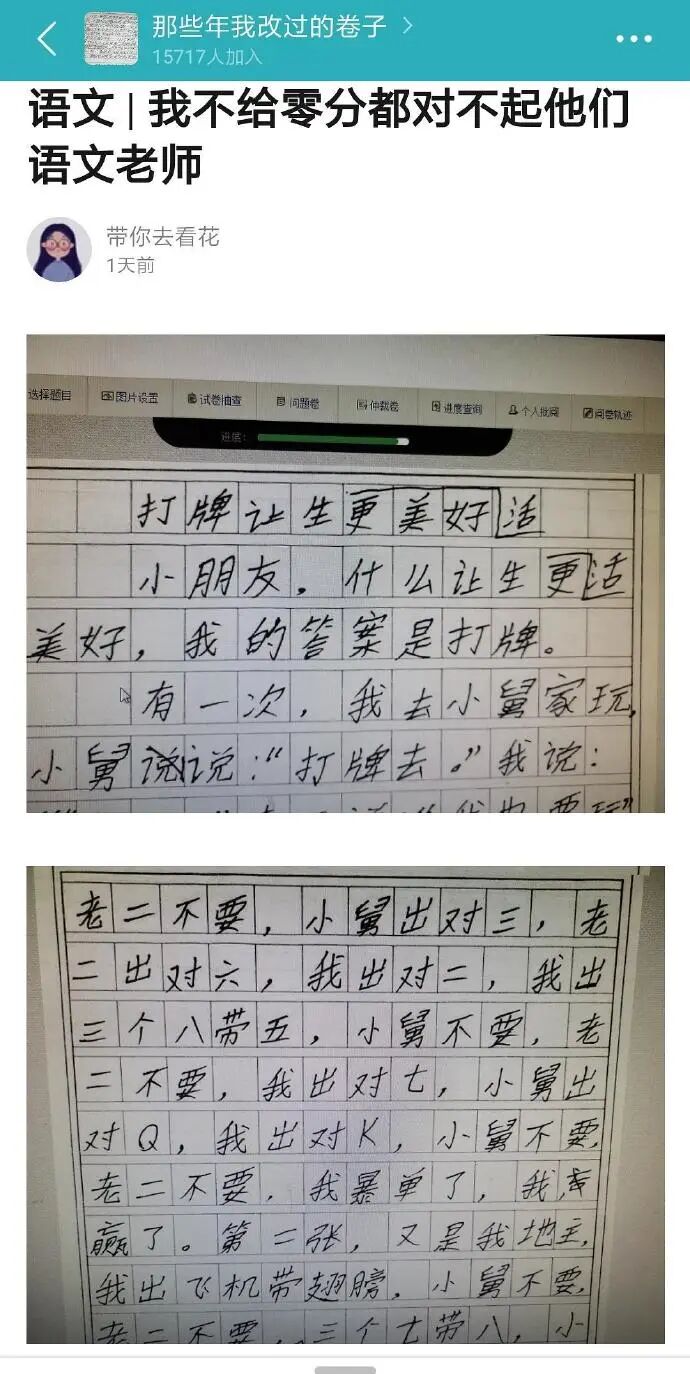 那些年我改过的卷子
15717人加入
语文 | 我不给零分都对不起他们
语文老师
带你去看花
1天前
选择题目 图片设置 试卷抽查 问题卷 仲裁卷 进度查询 个人批阅 阅卷轨迹
进度：
打牌让生更美好活
小朋友，什么让生更活
美好，我的答案是打牌。
有一次，我去小舅家玩，
小舅说说：“打牌去。”我说：
老二不要，小舅出对三，老
二出对六，我出对二，我出
三个八带五，小舅不要，老
二不要，我出对七，小舅出
对Q，我出对K，小舅不要，
老二不要，我暴单了，我
赢了。第二张，又是我地主，
我出飞机带翅膀，小舅不要，
老二不要，三个七带八，小